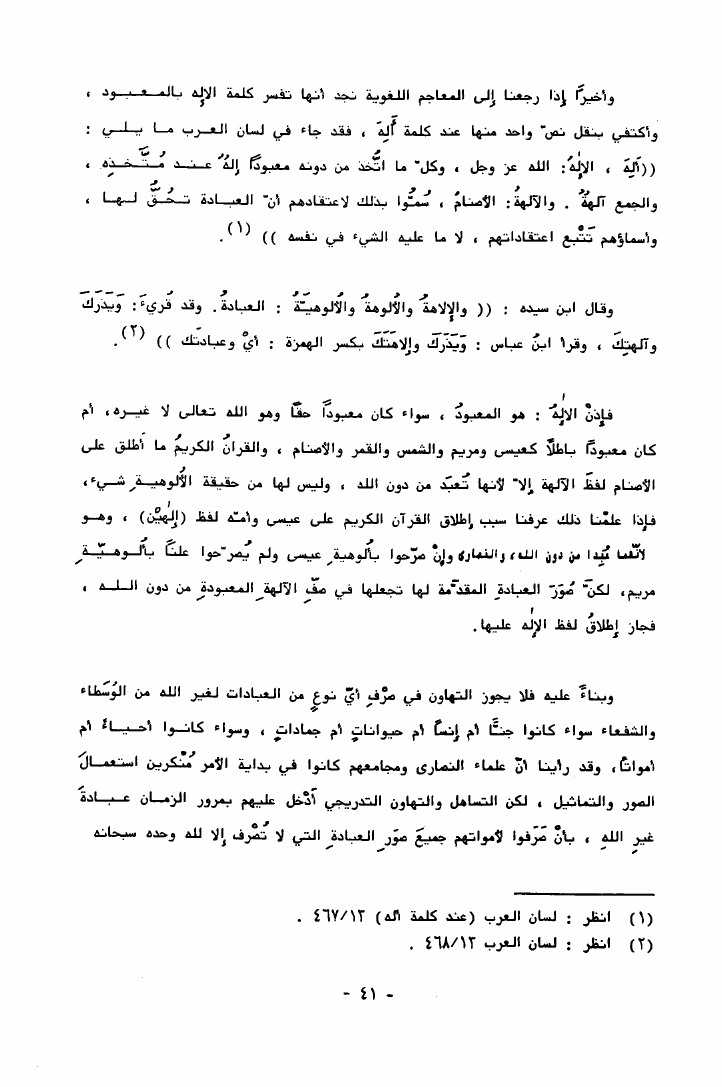 وأخيرًا إذا رجعنا إلى المعاجم اللغوية نجد أنها تفسر كلمة الإله بالمعبود ،
وأكتفي بنقل نصّ واحد منها عند كلمة أَلِهَ ، فقد جاء في لسان العرب ما يلي :
((أَلِهَ ، الإلٰهُ: الله عز وجل ، وكلّ ما اتُّخذ من دونه معبودًا إلهٌ عند مُتَّخذِه ،
والجمع آلهةٌ . والآلهةُ: الأصنامُ ، سُمُّوا بذلك لاعتقادهم أنّ العبادة تحُقُّ لها ،
وأسماؤهم تَتْبع اعتقاداتهم ، لا ما عليه الشيء في نفسه )) (١).
وقال ابن سيده : (( والإلاهةُ والأُلوهةُ والأُلوهيّةُ : العبادةُ. وقد قُريءَ: وَيَذَرَكَ
وآلهتِكَ ، وقرأ ابنُ عباس : وَيَذَرَكَ وإلاهَتَكَ بكسر الهمزة : أيْ وعبادتَك )) (٢).
فإذنْ الإلٰهُ : هو المعبودُ ، سواء كان معبودًا حقًّا وهو الله تعالى لا غيره، أم
كان معبودًا باطلًا كعيسى ومريم والشمس والقمر والأصنام ، والقرآنُ الكريمُ ما أطلق على
الأصنام لفظَ الآلهة إلاّ لأنها تُعبَد من دون الله ، وليس لها من حقيقة الأُلوهيةِ شيء،
فإذا علمْنا ذلك عرفنا سبب إطلاق القرآن الكريم على عيسى وأمّه لفظ (إلٰهيْن) ، وهو
لأنّهما عُبِدا من دون الله، والنصارى وإنْ صرّحوا بألوهيةِ عيسى ولم يُصرّحوا علنًا بألوهيّةِ
مريم، لكنّ صُوَرَ العبادةِ المقدَّمة لها تجعلها في صفِّ الآلهةِ المعبودةِ من دون الله ،
فجاز إطلاقُ لفظ الإلٰه عليها.
وبناءً عليه فلا يجوز التهاون في صرْفِ أيِّ نوعٍ من العبادات لغير الله من الوُسَطاء
والشفعاء سواء كانوا جنًّا أم إنسًا أم حيواناتٍ أم جماداتٍ ، وسواء كانوا أحياءً أم
أمواتًا، وقد رأينا أنّ علماء النصارى ومجامعهم كانوا في بداية الأمر مُنْكرين استعمالَ
الصور والتماثيل ، لكن التساهل والتهاون التدريجي أدْخل عليهم بمرور الزمان عبادةَ
غيرِ اللهِ ، بأنْ صَرَفوا لأمواتهم جميعَ صوَرِ العبادةِ التي لا تُصْرف إلا لله وحده سبحانه
(١) انظر : لسان العرب (عند كلمة أله) ٤٦٧/١٣ .
(٢) انظر : لسان العرب ٤٦٨/١٣ .
- ٤١ -